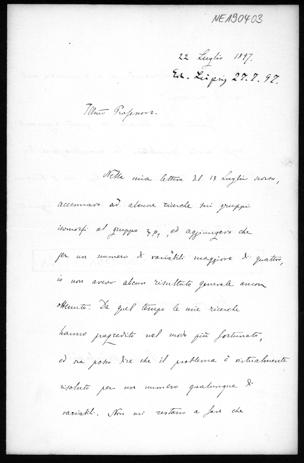 NEA90403
22 Luglio 1897.
Ed. Leipzig 27.7.97.
Illmo Professore.
Nella mia lettera del 13 Luglio scorso,
accennavo ad alcune ricerche sui gruppi
isomorfi al gruppo ed aggiungevo che
per un numero di variabili maggiore di quattro,
io non avevo alcun risultato generale ancora
ottenuto. Da quel tempo le mie ricerche
hanno progredito nel modo più fortunato,
ed ora posso dire che il problema è virtualmente
risoluto per un numero qualunque di
variabili. Non mi restano a fare che